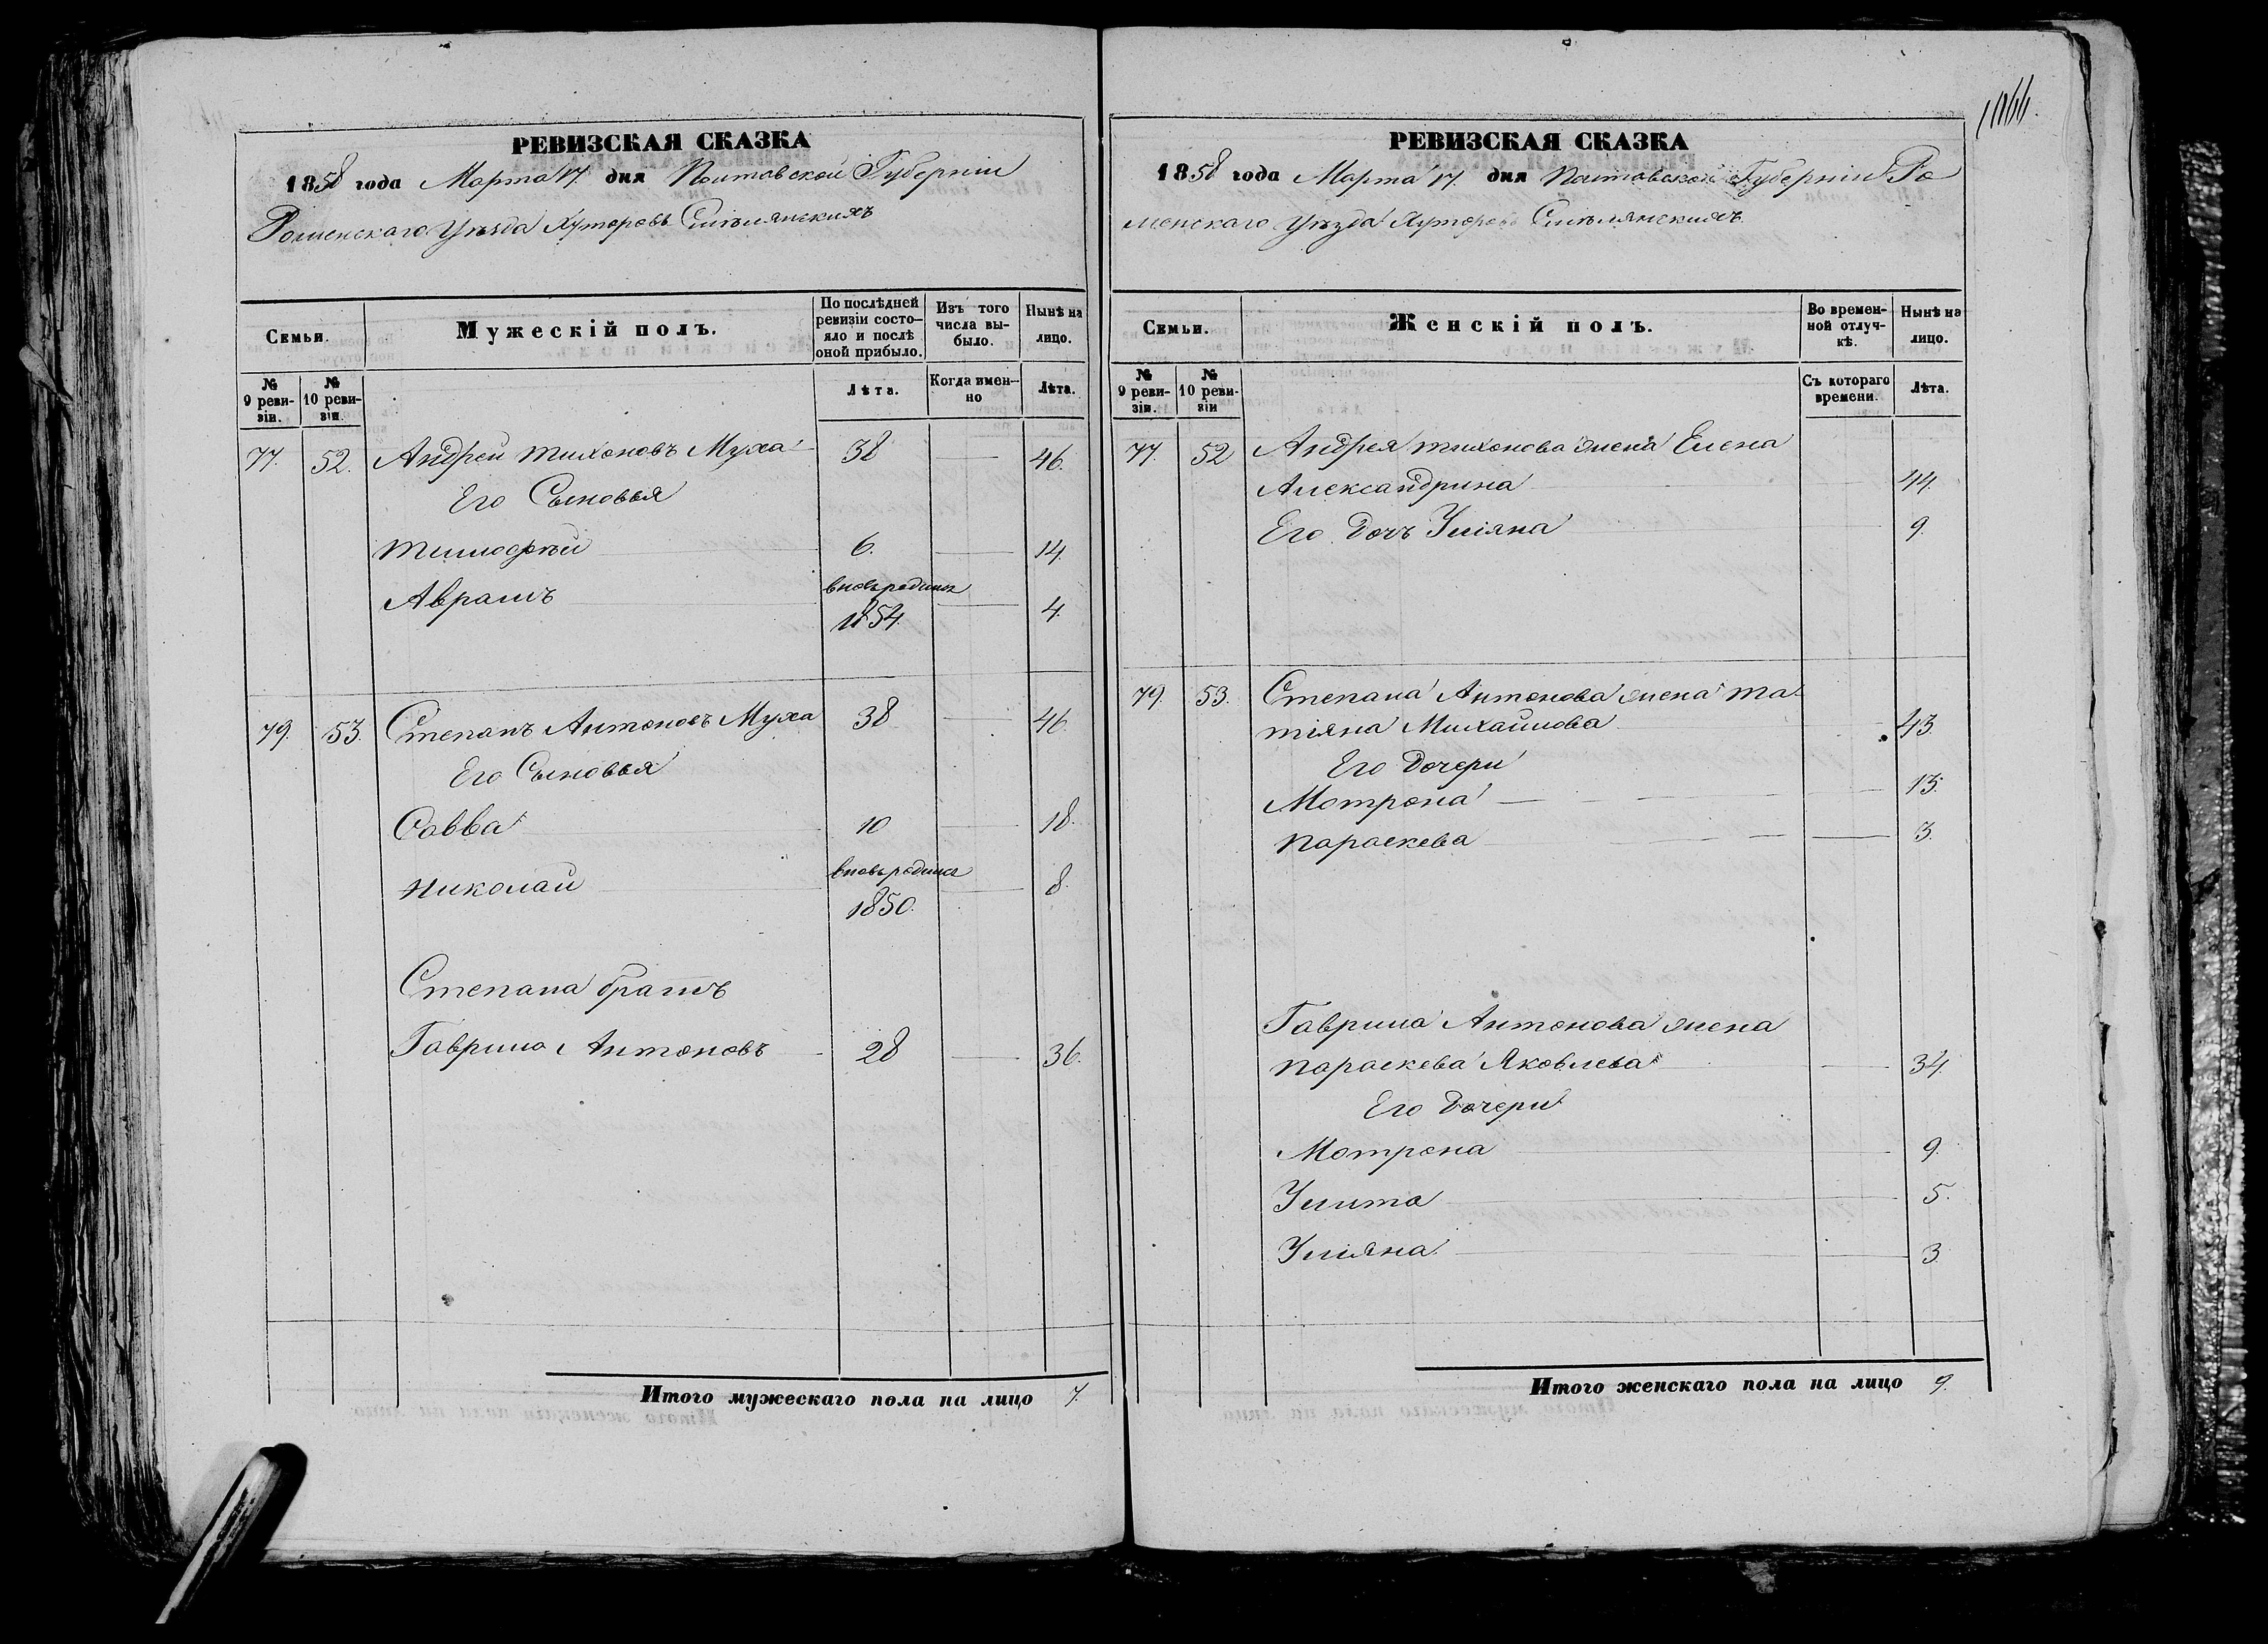 1066.
РЕВИЗСКАЯ СКАЗКА
1858 года Марта 17. дня Полтавской Губерніи
Роменскаго Уѣзда Хуторовъ Смѣлянскихъ
Семьи.
Мужескій полъ.
По послѣдней ревизіи состо-
яло и послѣ
оной прибыло.
Изъ того
числа вы-
было.
Нынѣ на
лицо.
№
9 реви-
зіи.
№
10 реви-
зіи.
Лѣта.
Когда имен-
но
Лѣта.
77. 52. Андрей Тихоновъ Муха 38 46.
Его Сыновья
Тимофѣй 6. 14.
Аврамъ вновь родился 1854. 4.
79. 53. Степанъ Антоновъ Муха 38 46.
Его Сыновья
Савва 10 18.
Николай вновь родился 1850. 8.
Степана братъ
Гаврило Антоновъ 28 36.
Итого мужескаго пола на лицо 7.
РЕВИЗСКАЯ СКАЗКА
1858 года Марта 17. дня Полтавской Губерніи Ро
менскаго Уѣзда Хуторовъ Смѣлянскихъ
Семьи.
Женскій полъ.
Во времен-
ной отлуч-
кѣ.
Нынѣ на
лицо.
№
9 реви-
зіи.
№
10 реви-
зіи
Съ котораго
времени.
Лѣта.
77. 52 Андрея Тихонова жена Елена
Александрина 44.
Его Дочь Уліяна 9.
79. 53. Степана Антонова жена Та
тіяна Михайлова 43.
Его Дочери
Мотрона 13.
Параскева 3.
Гаврила Антонова жена
Параскева Яковлева 34.
Его Дочери
Мотрона 9.
Улита 5.
Уліяна 3.
Итого женскаго пола на лицо 9.